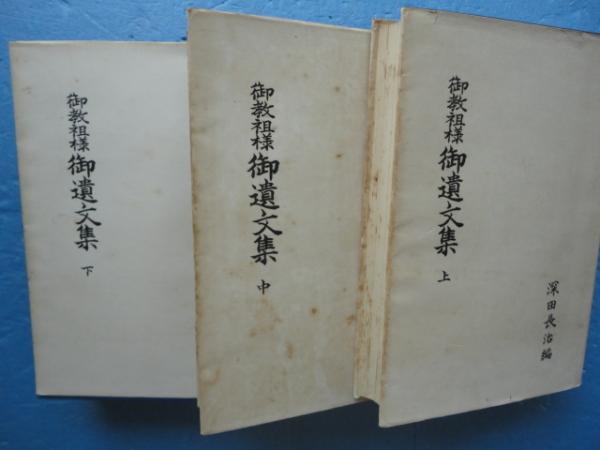 御教祖様 御遺文集 上
深田長治編
御教祖様 御遺文集 中
御教祖様 御遺文集 下